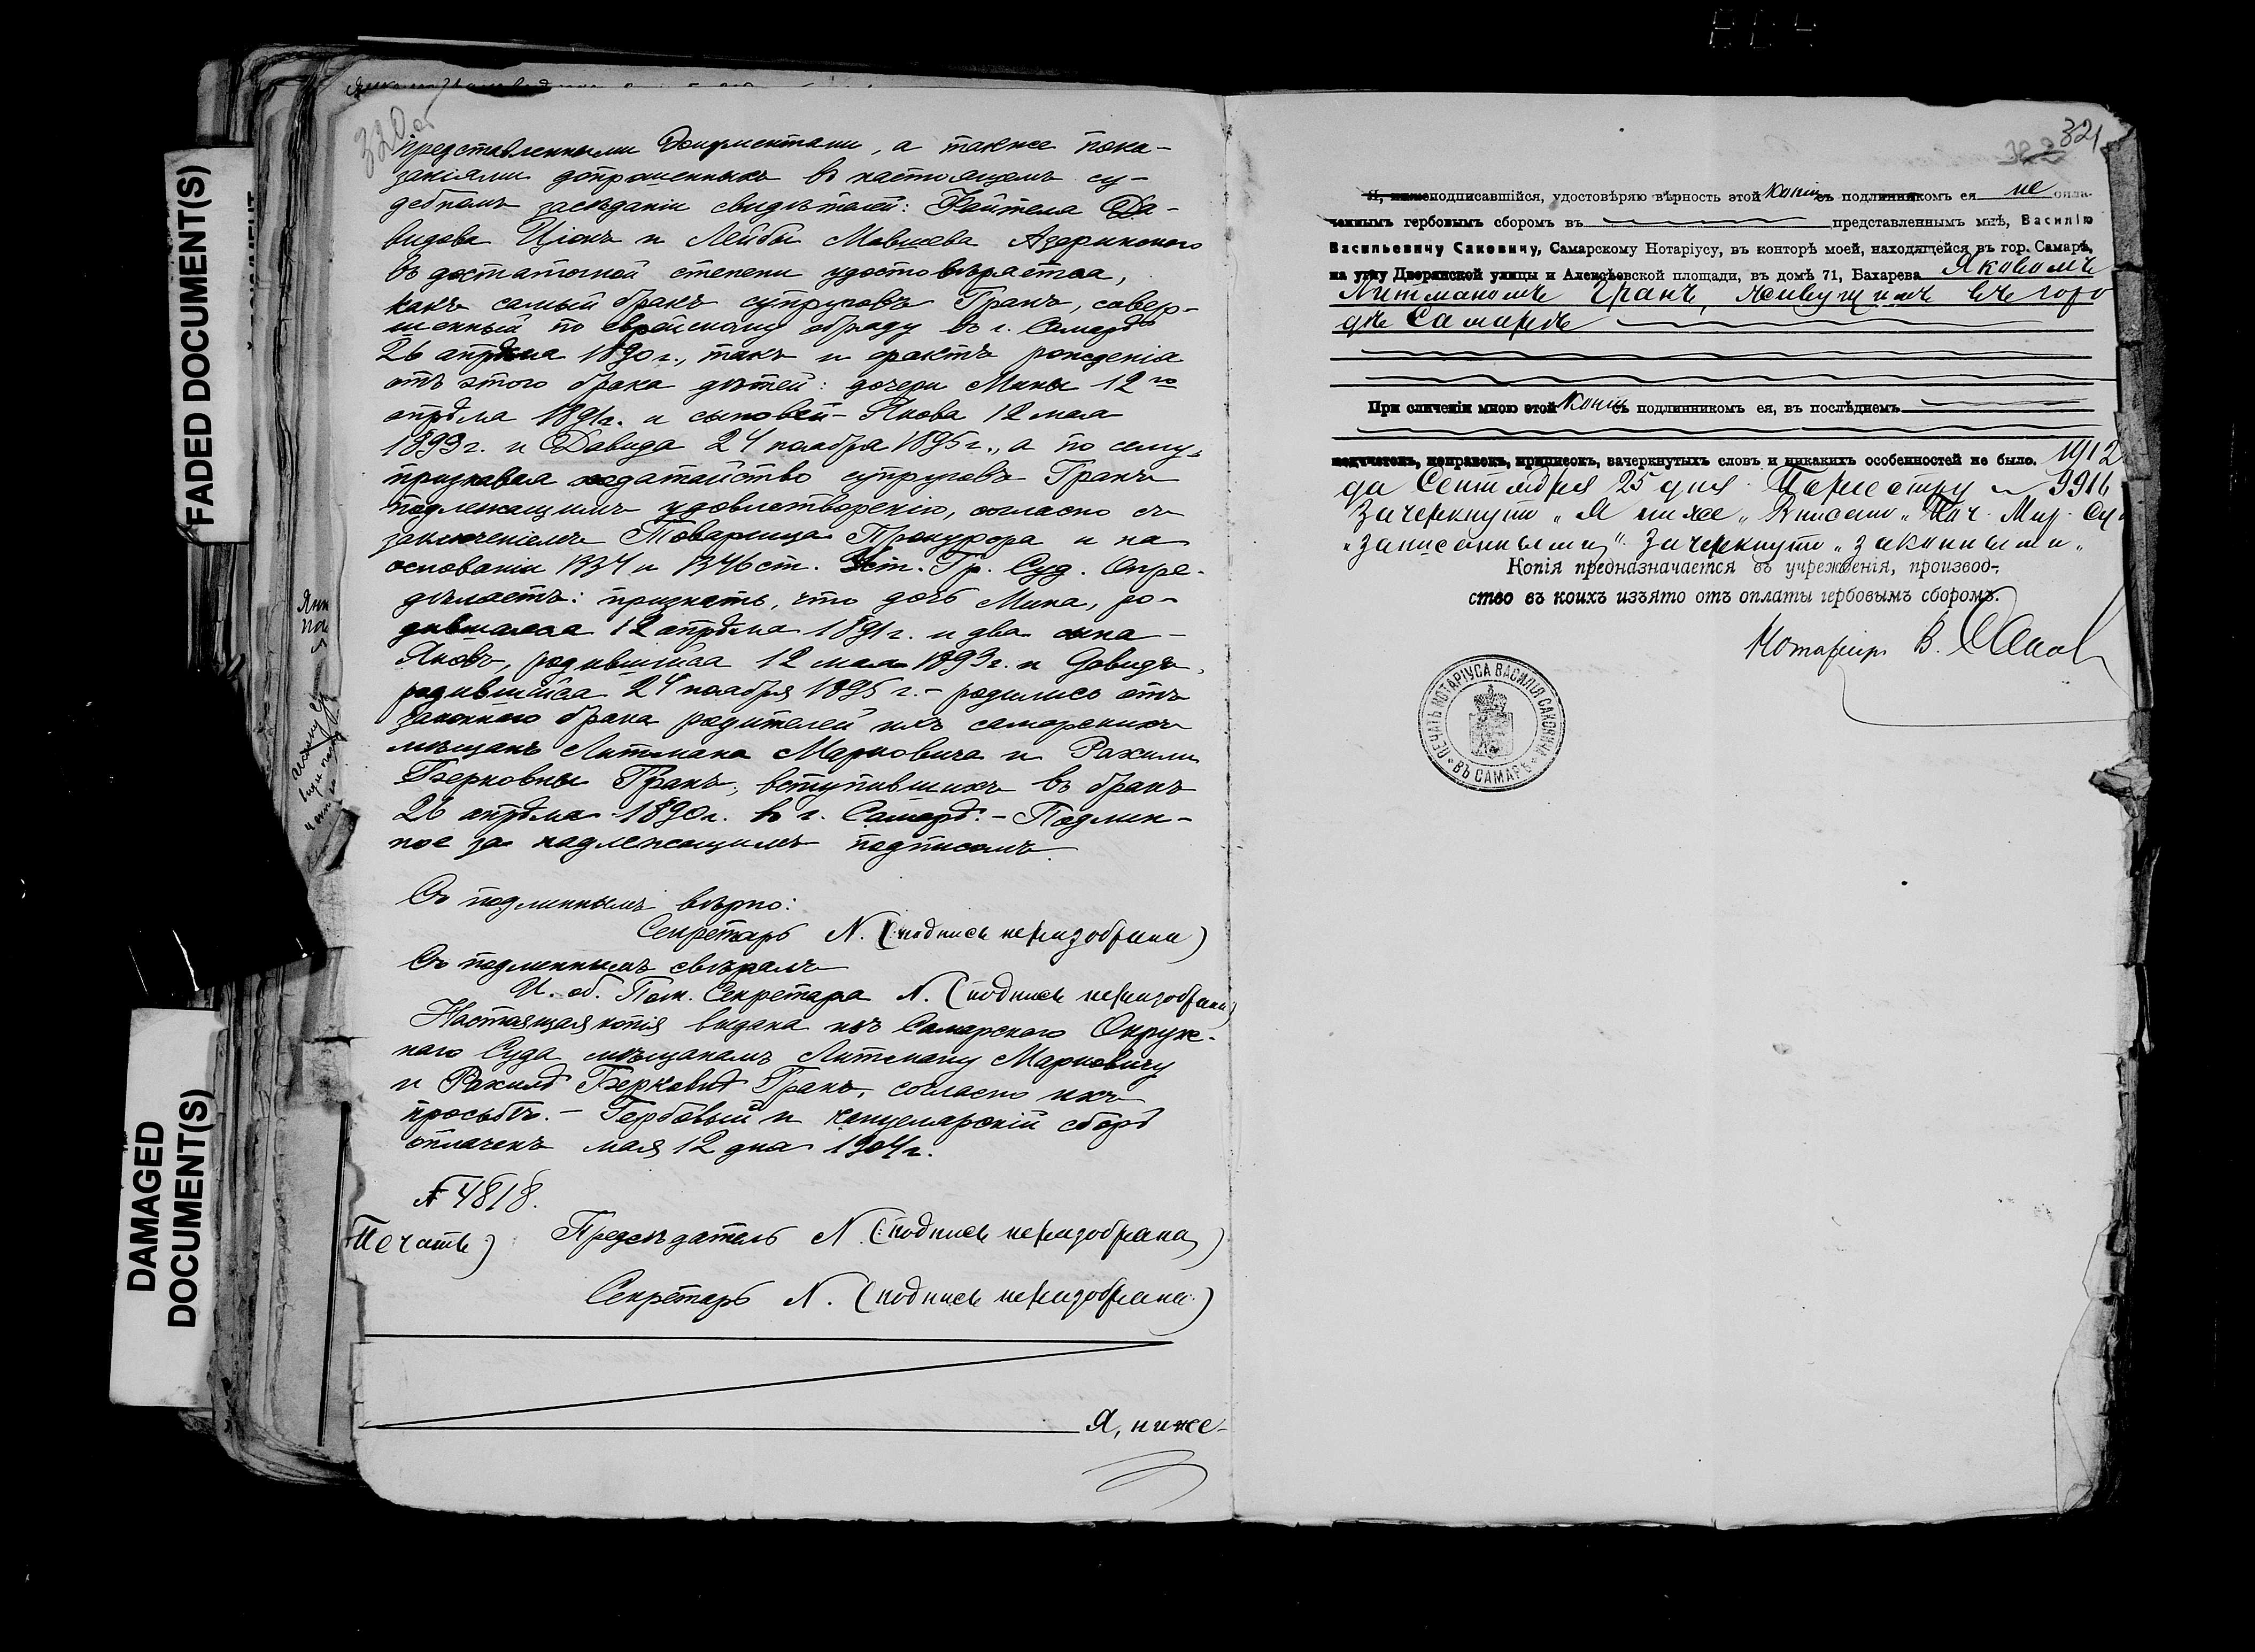 FADED DOCUMENT(S)
DAMAGED DOCUMENT(S)
320 об
представленными документами, а также пока-
заніями допрошенныхъ въ настоящемъ су-
дебномъ засѣданіи свидѣтелей: Файтеля Да-
видова Ціонъ и Лейбы Мовшева Азеринскаго
въ достаточной степени удостовѣряется,
какъ самый бракъ супруговъ Гранъ, совер-
шенный по еврейскому обряду въ г. Самарѣ
26 апрѣля 1890 г., такъ и фактъ рожденія
отъ этого брака дѣтей: дочери Мины 12го
апрѣля 1891 г. и сыновей - Якова 12 мая
1893 г. и Давида 24 ноября 1895 г., а по сему,
признавая ходатайство супруговъ Гранъ
подлежащимъ удовлетворенію, согласно съ
заключеніемъ Товарища Прокурора и на
основаніи 1354 и 1346 ст. Уст. Гр. Суд. Опре-
дѣляетъ: признать, что дочь Мина, ро-
дившаяся 12 апрѣля 1891 г. и два сына -
Яковъ, родившійся 12 мая 1893 г. и Давидъ,
родившійся 24 ноября 1895 г. - родились отъ
законнаго брака родителей ихъ самарскихъ
мѣщанъ Литмана Марковича и Рахили
Берковны Гранъ, вступившихъ въ бракъ
26 апрѣля 1890 г. въ г. Самарѣ. - Подлин-
ное за надлежащимъ подписомъ.
Съ подлиннымъ вѣрно:
Секретарь N. (подпись неразобрана)
Съ подлиннымъ свѣрялъ
И. об. Пом. Секретаря N. (подпись неразобрана)
Настоящая копія выдана изъ Самарскаго Окруж-
наго Суда мѣщанамъ Литману Марковичу
и Рахилѣ Берковнѣ Гранъ, согласно ихъ
просьбѣ. - Гербовый и канцелярскій сборъ
оплаченъ мая 12 дня 1904 г.
№ 4818.
(Печать) Предсѣдатель N. (подпись неразобрана)
Секретарь N. (подпись неразобрана)
Я, ниже-
321
Я, нижеподписавшійся, удостовѣряю вѣрность этой копіи съ подлинникомъ ея не опла-
ченнымъ гербовымъ сборомъ въ представленнымъ мнѣ, Василію
Васильевичу Саковичу, Самарскому Нотаріусу, въ конторѣ моей, находящейся въ гор. Самарѣ,
на углу Дворянской улицы и Алексѣевской площади, въ домѣ 71, Бахарева Яковомъ
Литманомъ Гранъ, живущимъ въ горо
дѣ Самарѣ
При сличеніи мною этой копіи съ подлинникомъ ея, въ послѣднемъ
подчистокъ, поправокъ, приписокъ, зачеркнутыхъ словъ и никакихъ особенностей не было. 1912
да Сентября 25 дня. По реестру № 9916
Зачеркнуто „Я ниже„ Вписано
„записанными". Зачеркнуто „законными„
Копія предназначается въ учрежденія, производ-
ство въ коихъ изъято отъ оплаты гербовымъ сборомъ.
Нотаріусъ В. Саков
ПЕЧАТЬ НОТАРІУСА ВАСИЛІЯ САКОВИЧА * ВЪ САМАРѢ *